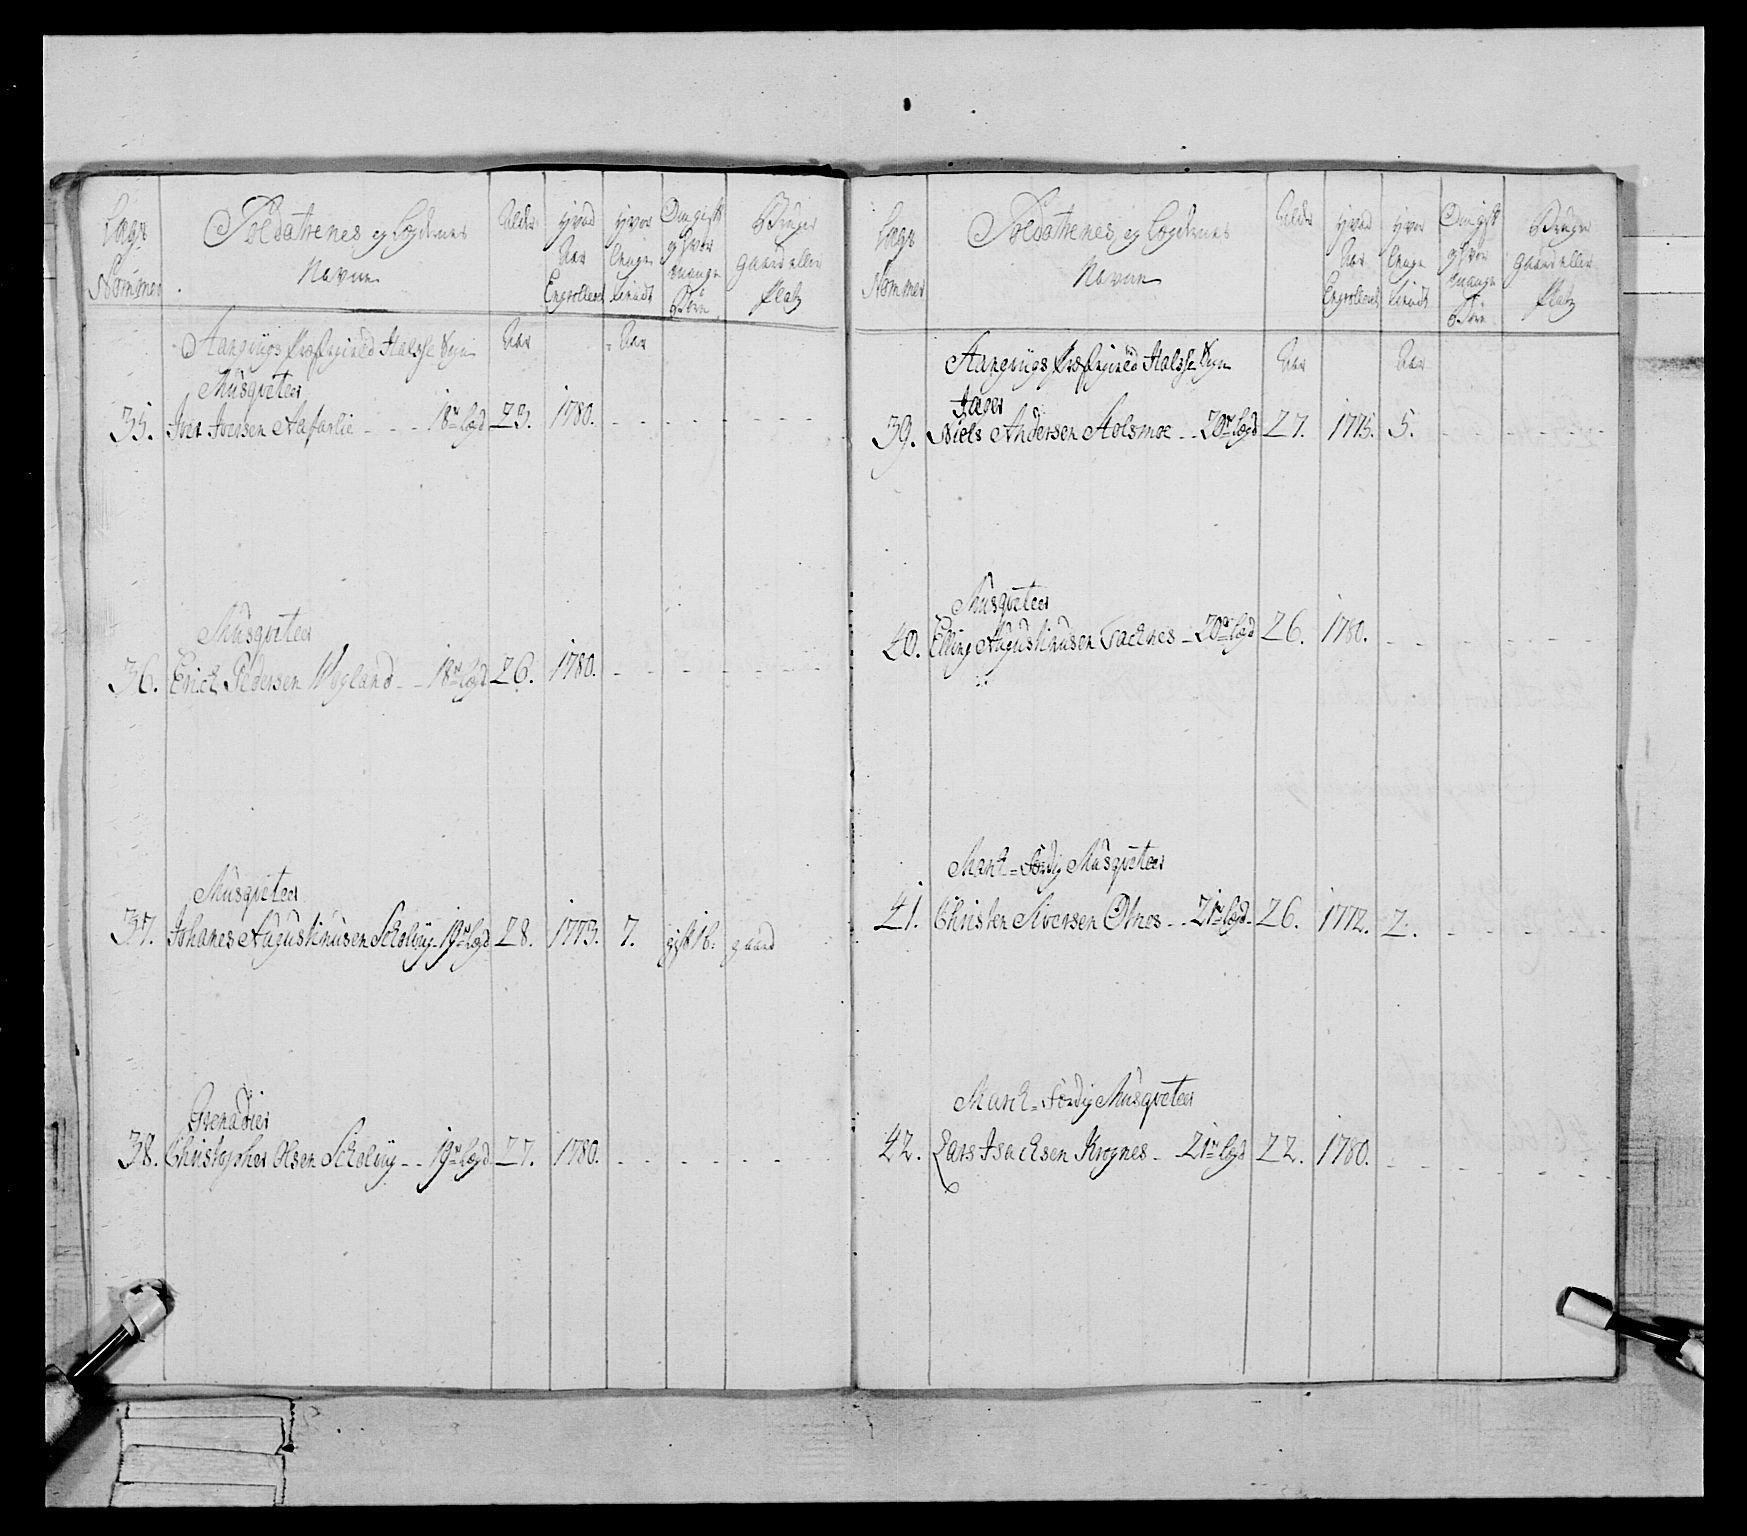 Lægs Nommer
Soldaternes og Lægdernes Navne
Alder
Hvad Aar Enrolleret
Hvor længe tient
Om gift og hvor mange Børn
Bruger gaard eller Platz
Aar
Aar
Musqveteer
35. Iver Iversen Aafarlie - - - 18de lægd 23. 1780. - - - -
Musqveteer
36. Erich Pedersen Wogland - - 18de lægd 26. 1780. - - - -
Musqveteer
37. Johanes Augustinusen Scholvüg - 19de lægd 28. 1773. 7. gift 1 b: gaard
Grenadier
38. Christopher Olsen Scholvüg - - 19de lægd 27. 1780. - - - -
Lægs Nommer
Soldaternes og Lægdernes Navne
Alder
Hvad Aar Enrolleret
Hvor længe tient
Om gift og hvor mange Børn
Bruger gaard eller Platz
Aar
Aar
Niels Andersen Aolsmoe - - 20de lægd
39. 27. 1775. 5. - - - -
Musqveteer
40. Elling Augustinusen - 20de lægd 26. 1780. - - - -
Musqveteer
41. Christen Siversen Otnes - - 21de lægd 26. 1772. 2. - - - -
Musqveteer
42. Lars Isachsen Krognes - 21de lægd 22. 1780. - - - -